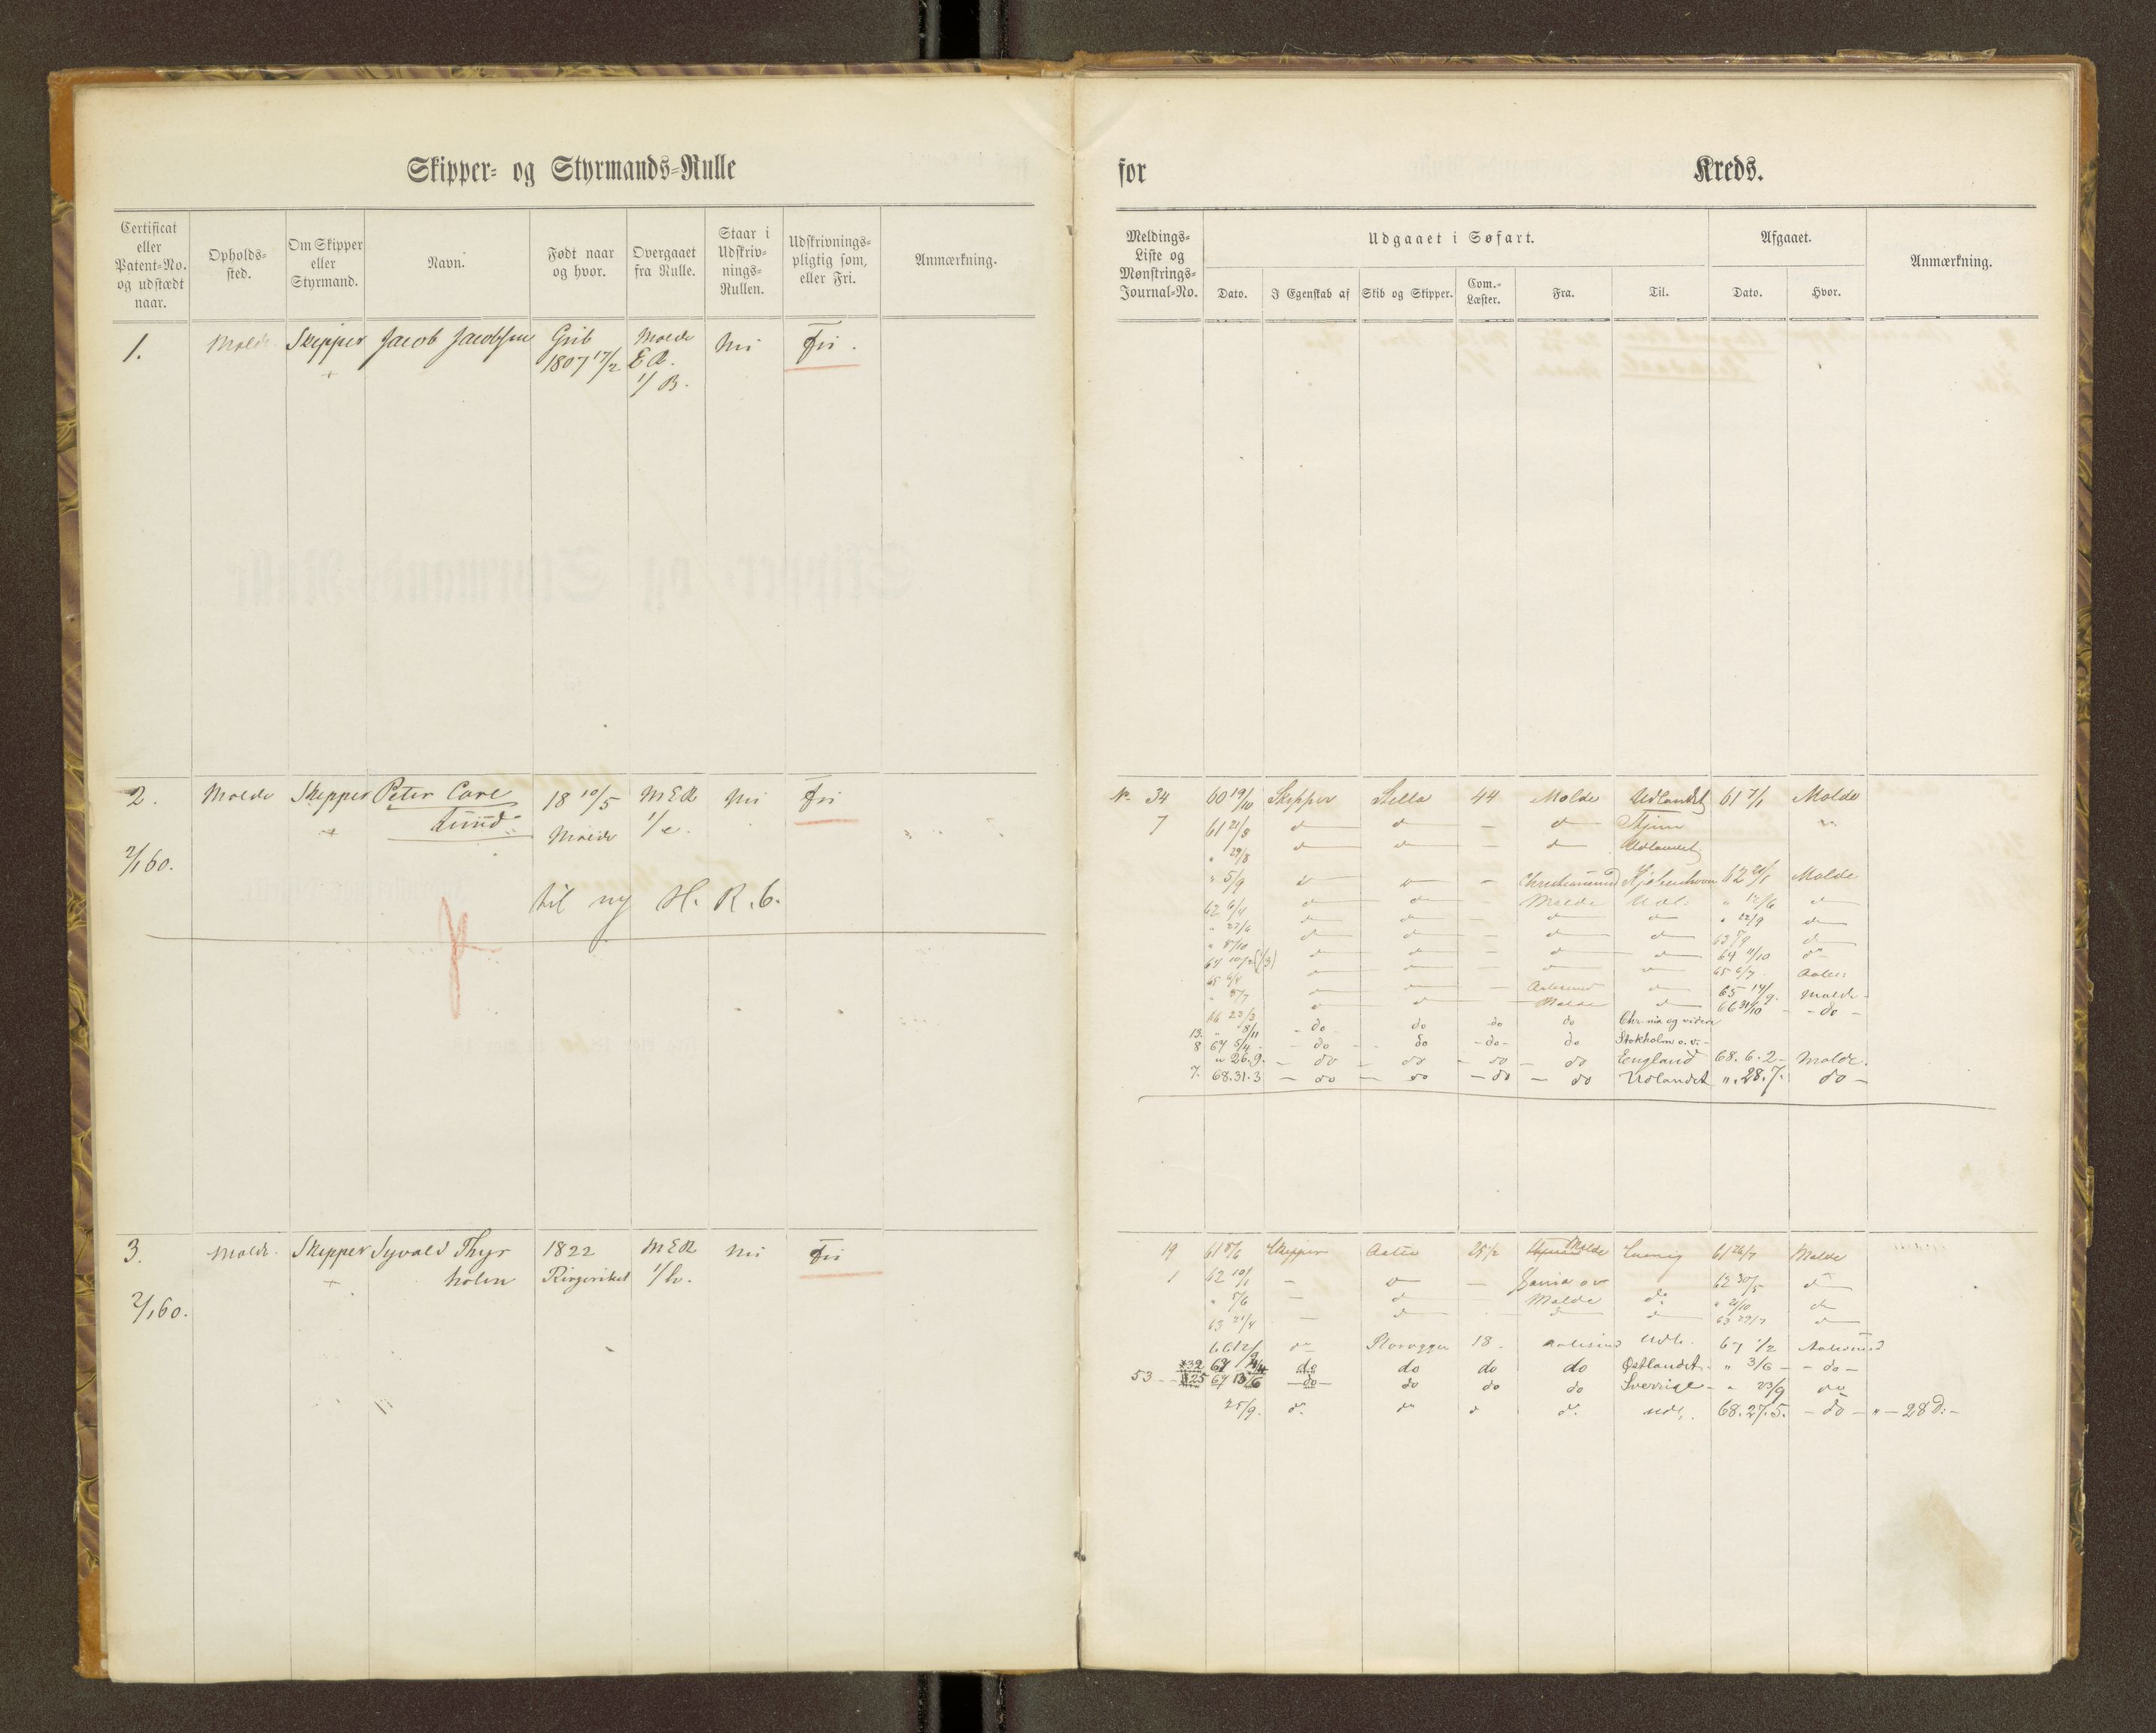 Skipper- og Styrmands-Rulle
Certificat eller Patent-No. og udstædt naar.
Opholds-sted.
Om Skipper eller Styrmand.
Navn.
Født naar og hvor.
Overgaaet fra Rulle.
Staar i Udskriv-nings-Rullen.
Udskrivnings-pligtig som, eller Fri.
Anmærkning.
1. Molde Skipper Jacob Jacobsen Grib Molde Nei Fri.
+ 1807 17/2 E R.
1/B.
2. Molde Skipper Peter Carl 18 10/5 MER Nei Fri
+ Lund Molde 1/c.
2/1 60.
til ny H. R. 6.
3. Molde. Skipper Syvald Thyr 1822 MER Nei Fri
+ holm Ringeriket 1/h.
2/1 60.
for Kreds.
Meldings-Liste og Mønstrings-Journal-No.
Udgaaet i Søfart.
Dato.
I Egenskab af
Skib og Skipper.
Com.-Læster.
Fra.
Til.
Afgaaet.
Dato.
Hvor.
Anmærkning.
No. 34 60 19/10 Skipper Stella 44 Molde Udlandet 61 7/1 Molde
7 61 21/8 d d — d
" 29/8 d d — d Udlandet
" 5/9 d d — Christiansund Kjøbenhavn 62 21/1 Molde
62 6/4 d d — Molde Udl. " 12/6 d
" 27/6 d d — d d " 22/9 d
" 8/10 d d — d d 63 d
64 10/2 d d — d d 64 11/10 do
65 6/4 d d — d d 65 6/7 Aales:
" 8/7 d d — Aalesund d 65 14/9. Molde
66 23/3 d d — Molde d 66 31/10 - do -
13. " 8/11 - do do do do Chr-nia og videre
8 67 5/4 - do - do - do - do Stokholm o. v. -
" 26.9. — do — do — do — do England 68. 6. 2 - Molde.
7. 68. 31. 3 — do — do — do — do Udlandet ". 28. 7. do —
19 61 8/6 Skipper 25 1/2 Molde 61 26/7 Molde
1 62 10/1 — d — o v 62 30/5 d
" 5/6 — d Molde do " 21/10 d
63 21/4 — d d d 63 29/7 d
66 12/9 do Storeggen 18. Aalesund Udl. 67 1/2 Aalesund
32 67 4/4 do do do do Østlandet - " 3/6 - - do -
53 - - 25 67 13/6 - do - do do do Sverrige - " 23/9 do
25/9. do. do d do. Udl. 68. 27. 5. - do - " - 28 d: -